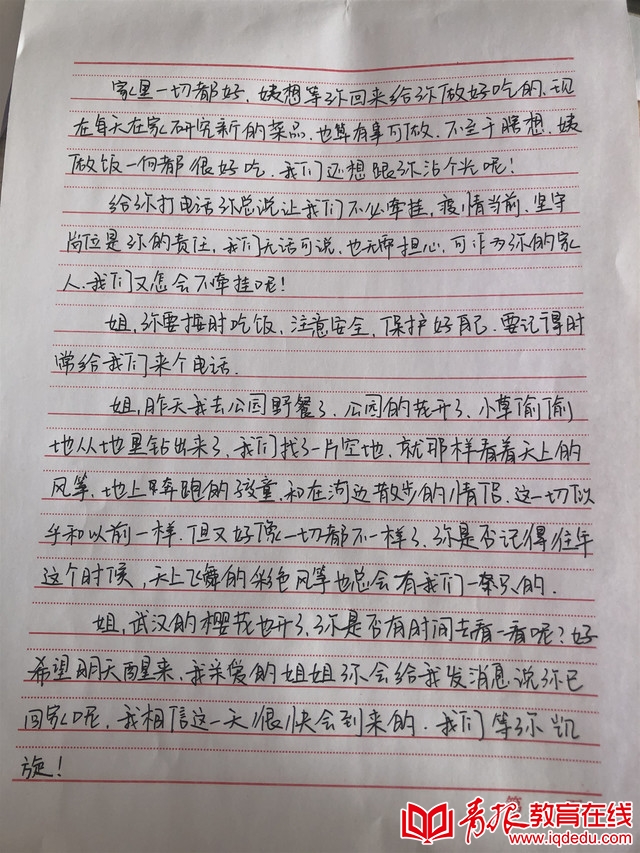 家里一切都好，姨想等你回来给你做好吃的，现
在每天在家研究新的菜品，也算有事可做，不至于瞎想，姨
做饭一向都很好吃，我们还想跟你沾个光呢！
给你打电话你总说让我们不必牵挂，疫情当前，坚守
岗位是你的责任，我们无话可说，也无需担心，可作为你的家
人，我们又怎会不牵挂呢！
姐，你要按时吃饭，注意安全，保护好自己，要记得时
常给我们来个电话。
姐，昨天我去公园野餐了，公园的花开了，小草偷偷
地从地里钻出来了，我们找了一片空地，就那样看着天上的
风筝，地上奔跑的孩童，和在河边散步的情侣，这一切似
乎和以前一样，但又好像一切都不一样了，你是否记得往年
这个时候，天上飞舞的彩色风筝也总会有我们一条只的。
姐，武汉的樱花也开了，你是否有时间去看一看呢？好
希望明天醒来，我亲爱的姐姐你会给我发消息说你已
回家呢，我相信这一天很快会到来的，我们等你凯
旋！
青报教育在线
www.iqdedu.com